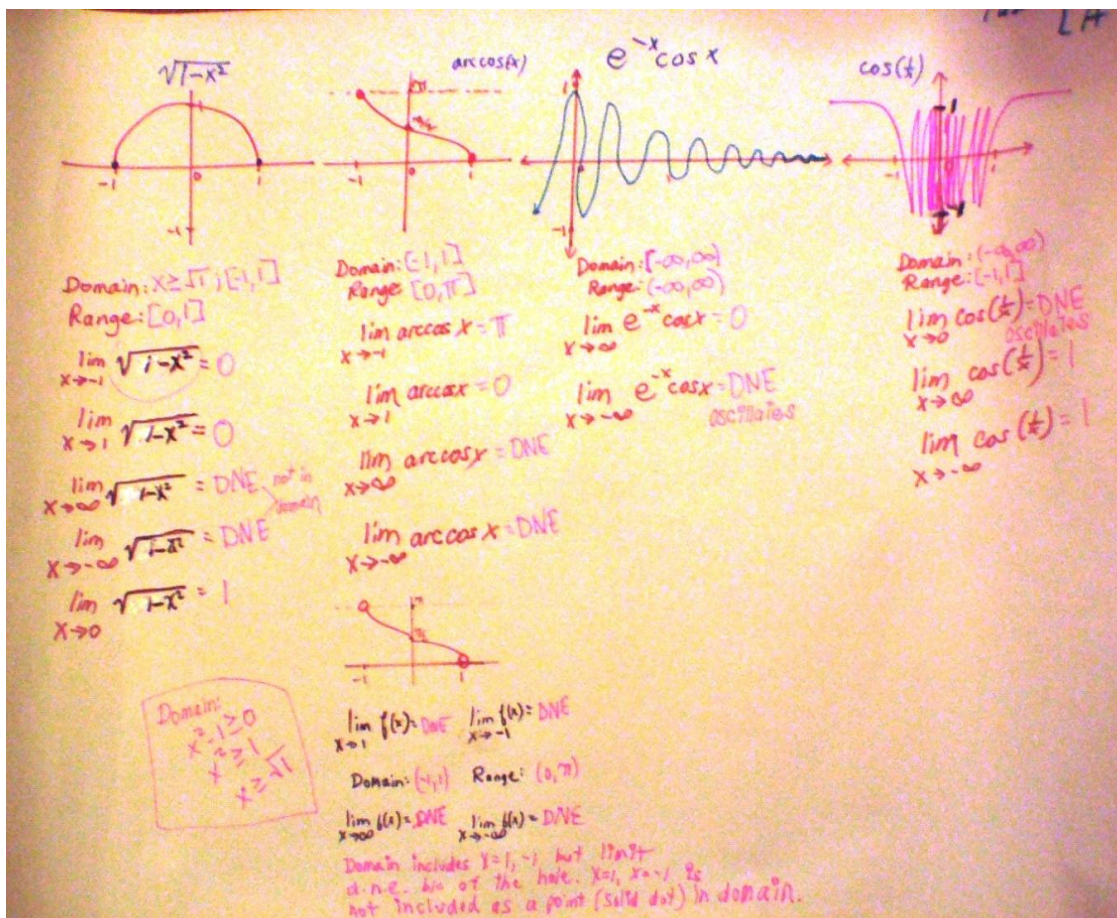 √1-x²
1
-1
0
1
-1
Domain: x≥√1; [-1,1]
Range: [0,1]
lim x→-1 √1-x² = 0
lim x→1 √1-x² = 0
lim x→∞ √1-x² = DNE not in domain
lim x→-∞ = DNE
lim x→0 √1-x² = 1
Domain:
x²-1≥0
x²≥1
x≥√1
arccos(x)
π
π/2
-1
0
1
Domain: [-1,1]
Range [0,π]
lim x→-1 arccos x = π
lim x→1 arccosx = 0
lim x→∞ arccosx = DNE
lim x→-∞ arccos x = DNE
π
-1
1
lim x→1 f(x) = DNE lim x→-1 f(x) = DNE
Domain: (-1,1) Range: (0,π)
lim x→∞ f(x) = DNE lim x→-∞ f(x) = DNE
Domain includes x=1, -1, but limit
d.n.e. b/c of the hole. x=1, x=-1 is
not included as a point (solid dot) in domain.
e⁻ˣcosx
1
-1
Domain: [-∞,∞)
Range: (-∞,∞)
lim x→∞ e⁻ˣcosx = 0
lim x→-∞ e⁻ˣcosx = DNE
oscillates
cos(1/x)
1
-1
0
1
-1
Domain: (-∞,∞)
Range: [-1,1]
lim x→0 cos(1/x) = DNE
oscillates
lim x→∞ cos(1/x) = 1
lim x→-∞ cos(1/x) = 1